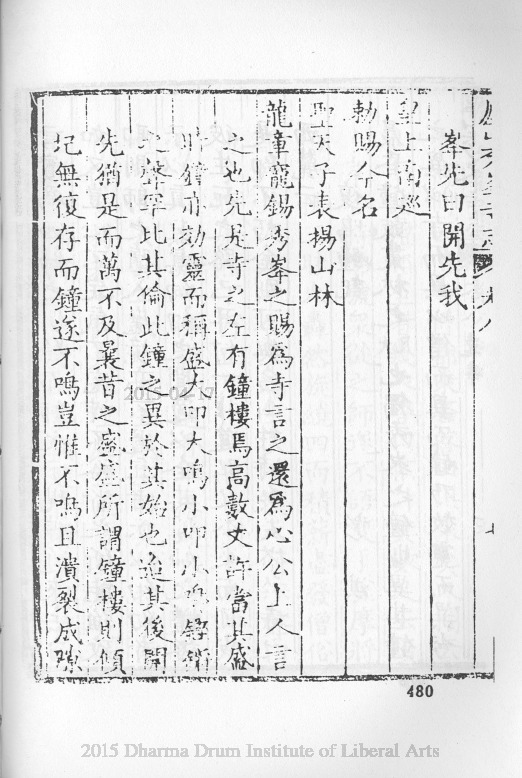 廬山秀峯寺志 卷八 七
峯先曰開先我
皇上南巡
勅賜今名
聖天子表揚山林
龍章寵錫秀峯之賜爲寺言之還爲心公上人言
之也先是寺之左有鐘樓焉高數丈許當其盛
時鐘亦効靈而稱盛大叩大鳴小叩小鳴鏗鏘
之聲罕比其倫此鐘之異於其始也迨其後開
先猶是而萬不及曩昔之盛盛所謂鐘樓則傾
圮無復存而鐘遂不鳴豈惟不鳴且潰裂成隙
480
2015-04-17
2015 Dharma Drum Institute of Liberal Arts